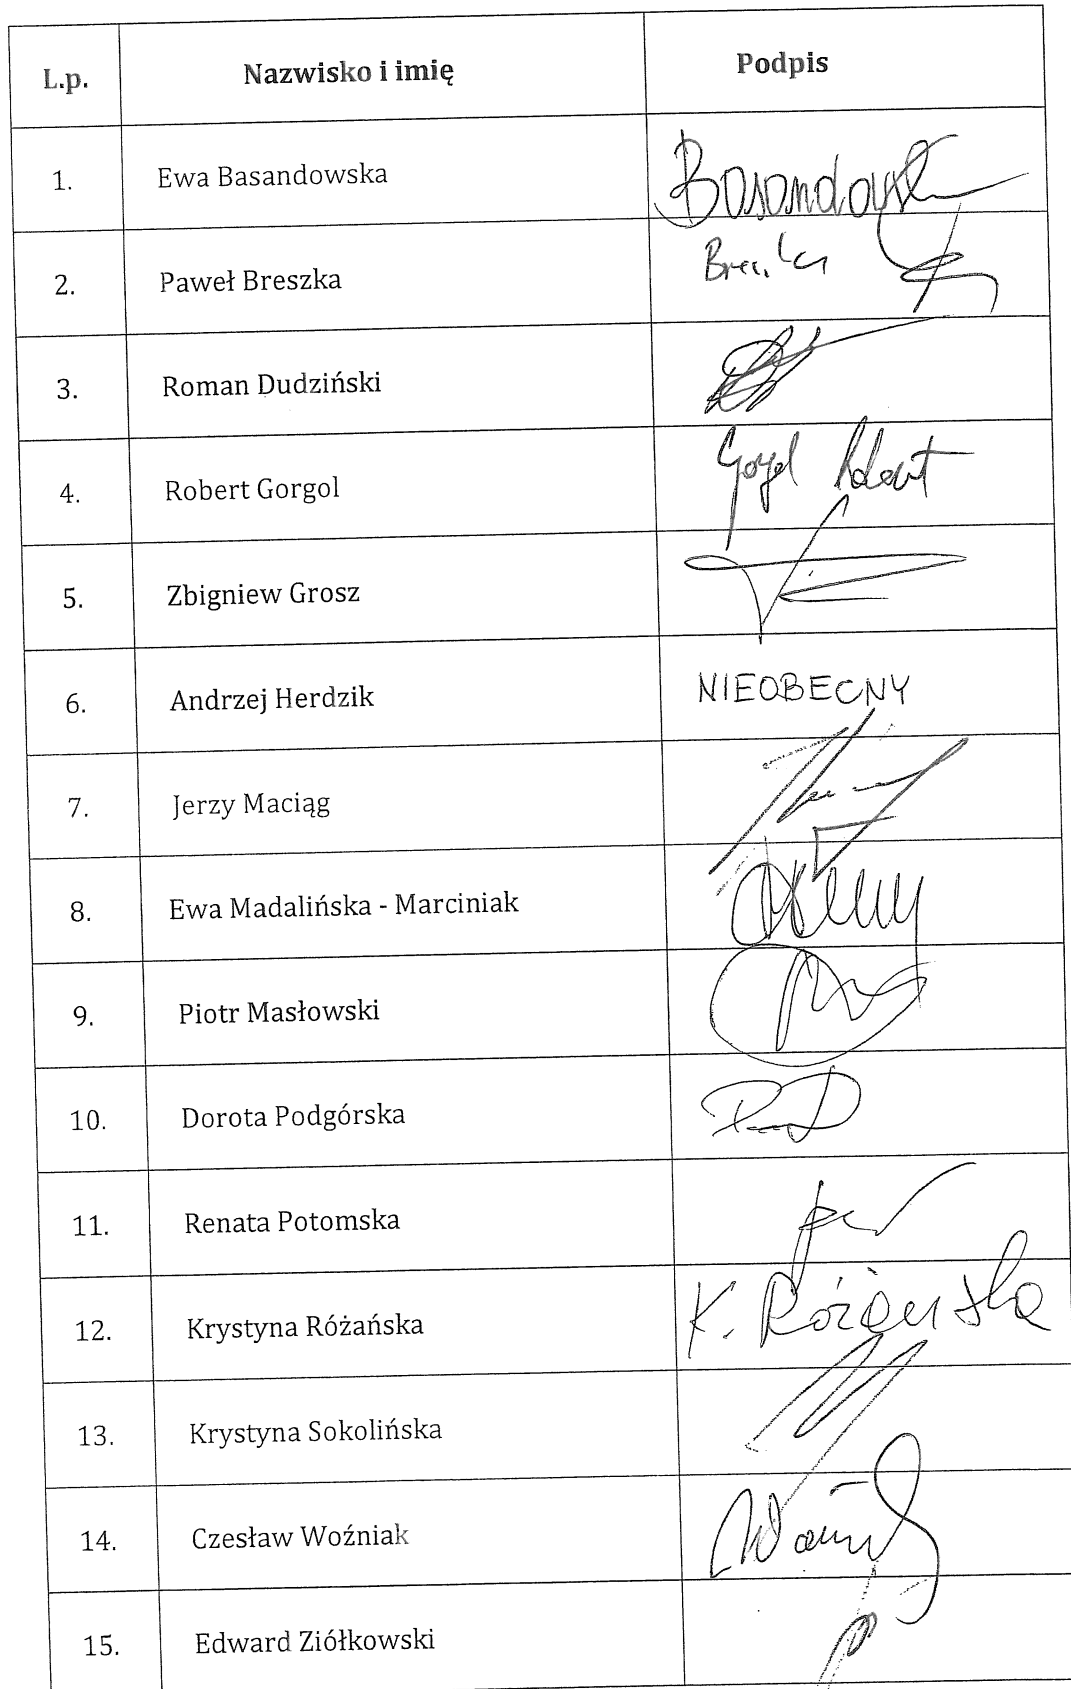 L.p. Nazwisko i imię Podpis
1. Ewa Basandowska Basandowska
2. Paweł Breszka Breszka
3. Roman Dudziński
4. Robert Gorgol Gorgol Robert
5. Zbigniew Grosz
6. Andrzej Herdzik NIEOBECNY
7. Jerzy Maciąg
8. Ewa Madalińska - Marciniak
9. Piotr Masłowski
10. Dorota Podgórska
11. Renata Potomska
12. Krystyna Różańska K. Różańska
13. Krystyna Sokolińska
14. Czesław Woźniak
15. Edward Ziółkowski